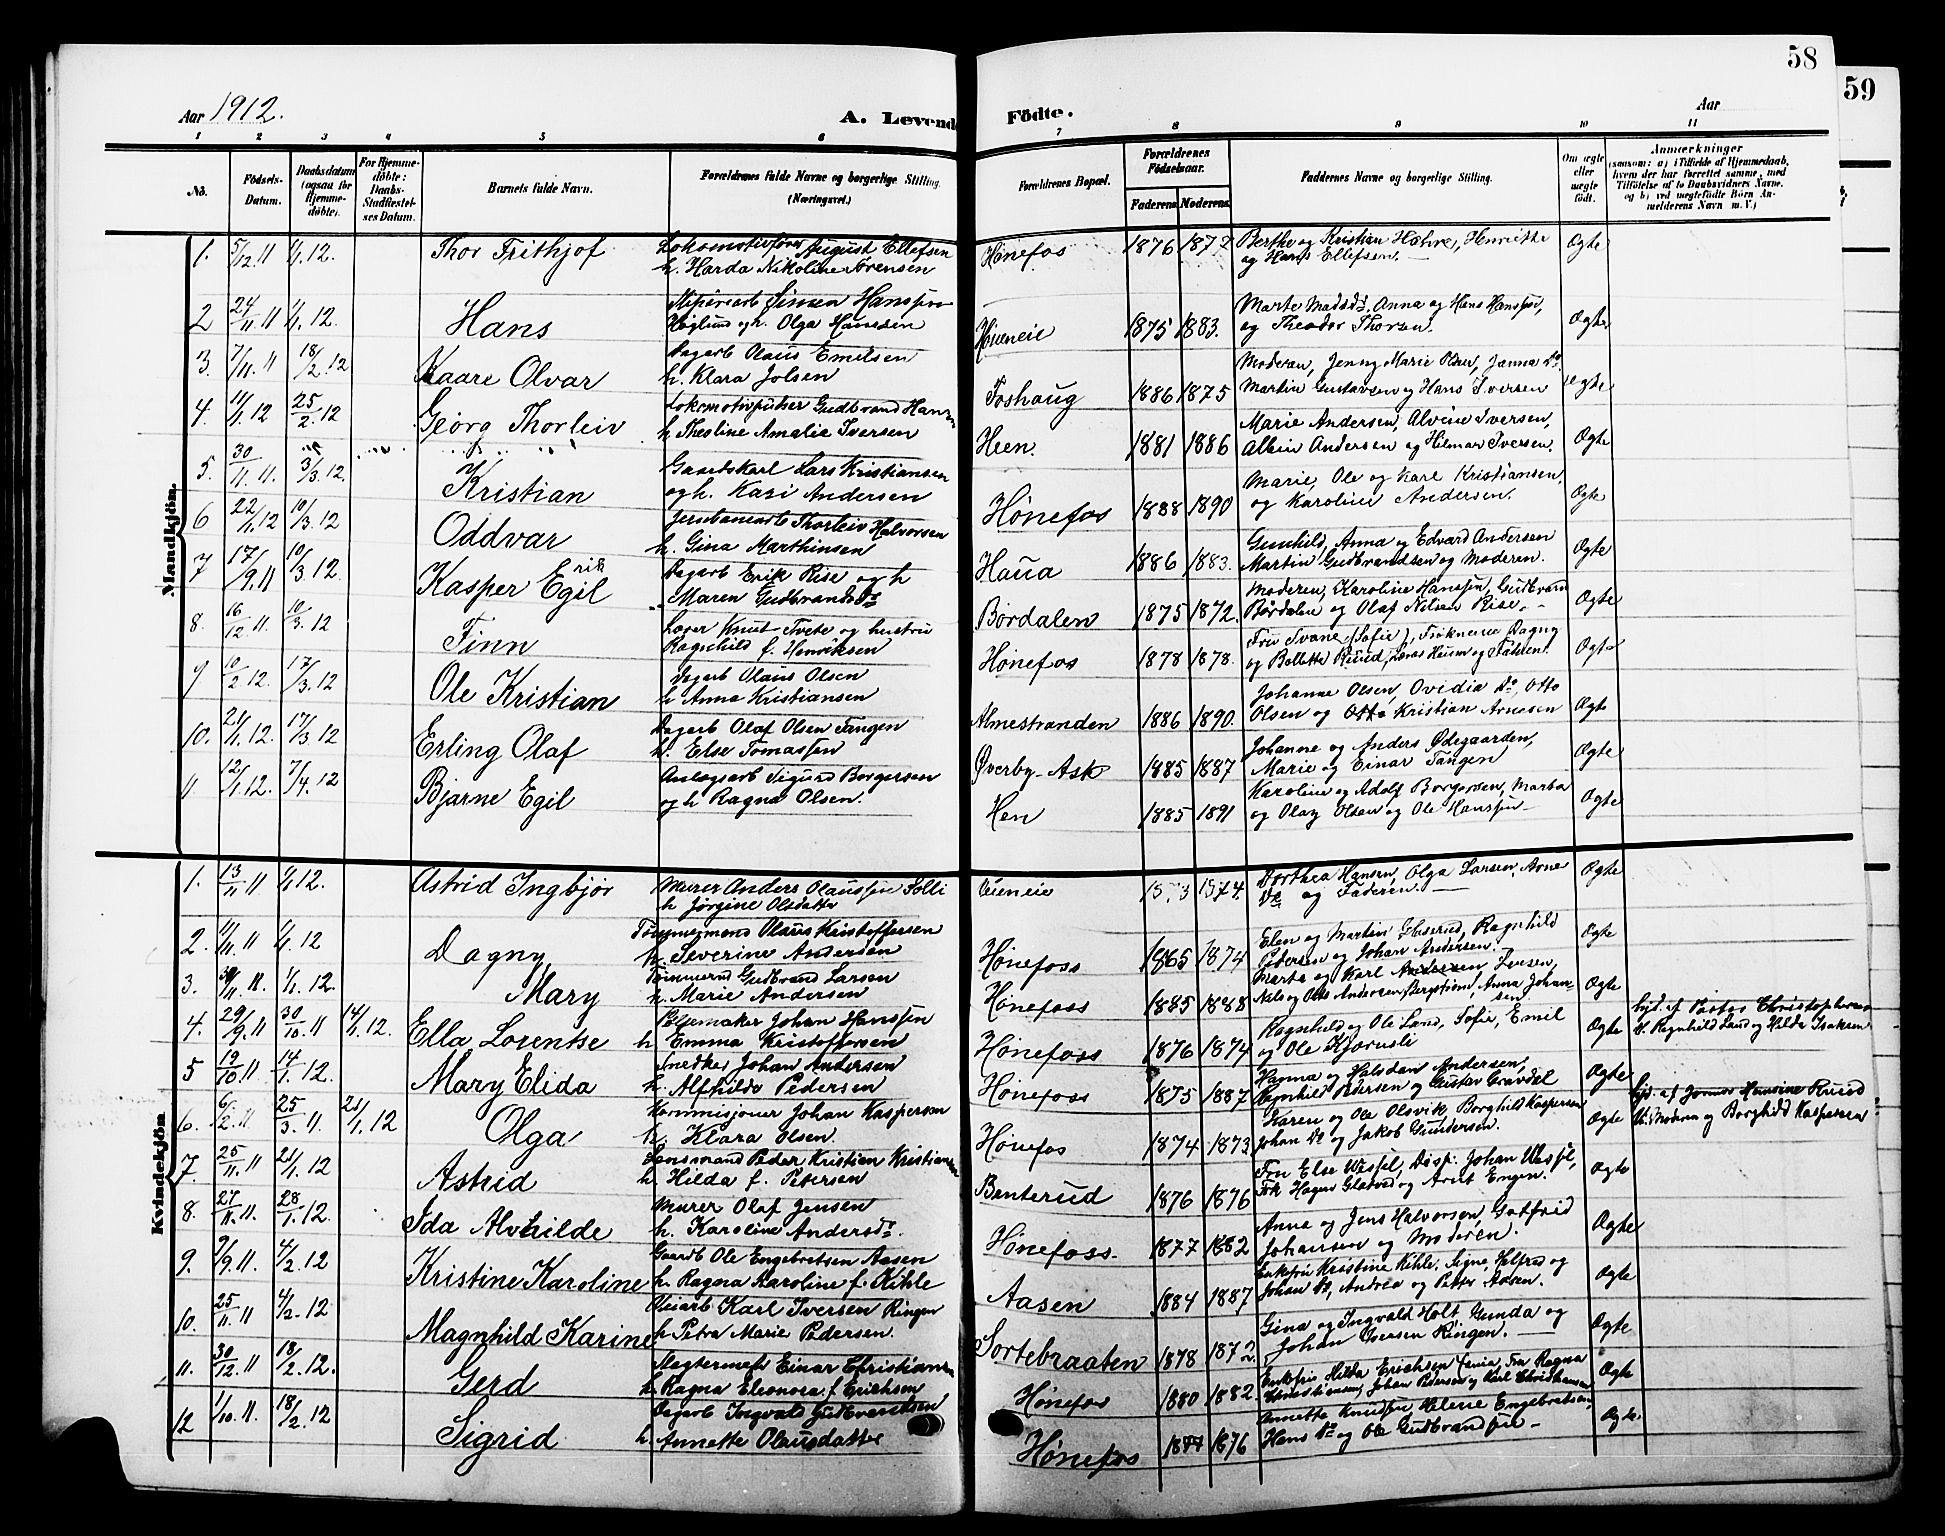 58
59
Aar 1912.
A. Levende Födte.
Aar
1 2 3 4 5 6 7 8 9 10 11
No. Födsels-Datum. Daabsdatum (ogsaa for Hjemme-döbte). For Hjemme-döbte: Daabs-Stadfæstel-ses Datum. Barnets fulde Navn. Forældrenes fulde Navne og borgerlige Stilling. (Næringsvei.) Forældrenes Bopæl. Forældrenes Födselsaar. Faderens Moderens Faddernes Navne og borgerlige Stilling. Om ægte eller uægte födt. Anmærkninger (saasom: a) i Tilfælde af Hjemmedaab, hvem der har forrettet samme, med Tilföielse af to Daabsvidners Navne, og b) ved uægtefödte Börn An-melderens Navn m. V.)
Mandkjön.
1. 5/12.11 1/1.12. Thor Frithjof Lokomotivfører August Ellefsen
h. Harda Nikoline Sørensen Hønefos 1876 1877 Berthe og Kristian Hæhre, Henriette
og Hans Ellefsen. Ægte
2 24/11.11 1/1.12. Hans Simen Hanssen
Høglund og h. Olga Hansen 1875 1883. Marte Madsdr, Anna og Hans Hanssen,
og Theodor Thoresen. Ægte
3. 7/11.11 18/2.12 Kaare Olvar Dagarb Olaus Emilsen
h. Klara Jolsen Foshaug 1886 1875 Moderen, Jenny Marie Olsen, Janna Do
Martin Gustavsen og Hans Iversen Ægte
4. 14/1.12 25/2.12 Georg Thorleiv Lokomotivpudser Gudbrand Hansen
h Thesline Amalie Iversen Heen. 1881 1886 Marie Andersen, Alvine Iversen,
Albin Andersen og Hilmar Iversen. Ægte
5. 30/11.11. 3/3.12. Kristian Gaardskarl Lars Kristiansen
og h. Kari Andersen Hønefos 1888 1890 Marie, Ole og Karl Kristiansen
og Karoline Andersen. Ægte
6 22/1.12 10/3.12 Oddvar Jernbanearb Thorleiv Halvorsen
h. Gina Marthinsen Haua 1886 1883. Gunhild, Anna og Edvard Andersen
Martin Gudbrandsen og Moderen. Ægte
7 17/9.11 10/3.12. Kasper Egil Erik Dagarb Erik Rise og h
Maren Gudbrandsdr Børdalen 1875 1872. Moderen, Karoline Hanssen, Gudbrand
Børdalen og Olaf Nilsen Rise. Ægte
8. 16/12.11. 10/3.12 Finn Knut Tvete og hustru
Ragnhild f. Henriksen Hønefos 1878 1878. Fru Svane (Sofie), Frøknerne Dagny
og Bollette Ruud, Ægte
9 10/2 12. 17/3.12 Ole Kristian Dagarb Olaus Olsen
h Anna Kristiansen Almestranden 1886 1890. Johanne Olsen, Ovidia Do, Otto
Olsen og Kristian Arnesen Ægte
10. 21/1.12. 17/3 12 Erling Olaf Dagarb Olaf Olsen Tangen
h. Else Tomassen Øverby-Ask 1885 1887 Johanne og Anders Ødegaarden,
Marie og Einar Tangen Ægte
11 12/1.12. 7/4.12 Bjarne Egil Anlægsarb Sigurd Borgersen
og h Ragna Olsen. Hen 1885 1891 Karoline og Adolf Borgersen, Marta
og Olaf Olsen og Ole Hanssen Ægte
Kvindekjön
1. 13/11 11 1/1 12. Astrid Ingbjør Murer Anders Olaussen Solli
h Jørgine Olsdatter 1874. Dorthea Hansen, Olga Larsen, Arne
Do og Faderen. Ægte
2. 11 1/1.12 Dagny Tømmermand Olaus Kristoffersen
h. Severine Andersen Hønefoss 1865 1874 Elen og Martin Ragnhild
Pedersen og Johan Andersen. Ægte
3. 11. 1/1.12. Mary Gudbrand Larsen
h. Marie Andersen Hønefoss 1885 1888 Marte og Karl Andersen Jensen,
Nils og Andersen Bergstrøm, Anna Johan-
sen. Ægte
4. 29/9.11 30/10.11 14/1.12. Ella Lorentse Pølsemaker Johan Hanssen
h Emma Kristoffersen Hønefoss 1876 1874 Ragnhild og Ole Land, Sofie, Emil
og Ole Kjørusli Ægte hjd. af Pastor Christophersen
V. Ragnhild Land og Hilda Isaksen
5 19/10 11 14/1.12. Mary Elida Snedker Johan Andersen
h. Alfhilda Pedersen Hønefoss 1875 1887 Hanna og Halvdan Andersen,
Ragnhild Pedersen og Gustav Gravdal Ægte
6. 6/2.11 25/3.11. 21/1.12 Olga Kommisjonær Johan Kaspersen
h. Klara Olsen. Hønefos 1874 1873 Karen og Ole Olsvik, Borghild Kaspersen
Johan Do og Jakob Gundersen. Ægte hjd. af Hansine Ruud
V. Moderen og Borghild Kaspersen
7 25/11.11 21/1.12 Astrid Lensmand Peder Kristian Kristiansen
h. Hilda f. Petersen Benterud 1876 1876 Fru Else Wessel, Disp. Johan Wessel,
Frk Hagen Gladved og Arnt Engen. Ægte
8. 27/11.11. 28/1.12. Ida Alvhilde Murer Olaf Jensen
h. Karoline Andersdr. Hønefoss. 1877 1882 Anna og Jens Halvorsen, Gotfred
Johansen og Moderen. Ægte
9. 9/9.11. 4/2.12 Kristine Karoline Gaardb Ole Engebretsen Aasen
h. Ragna Karoline f. Kihle Aasen 1884 1887 Enkefru Kristine Kihle, Signe, Helfred og
Johan Do, Andrea og Petter Aasen. Ægte
10. 25/11.11 4/2.12 Magnhild Karine Veiarb Karl Iversen Ringen
h Petra Marie Pedersen. Sortebraaten 1878 1872 Gina og Ingvald Holt, Gunda og
Johan Iversen Ringen. Ægte
11. 30/12.11 18/2.12. Gerd Einar Christiansen
h. Ragna Eleonora f. Erichsen Hønefos 1880 1882. Enkefru Hilda Erichsen, Fru Ragna
Christiansen, Johan Pedersen og Karl Christiansen Ægte
12 1/10.11. 18/2.12 Sigrid Dagarb Ingvald Gudbrandsen
h. Annette Olausdatter Hønefos 1877 1876 Annette Knudsen Helene Engebretsen
Hans Do og Ole Gudbrandsen Ægte